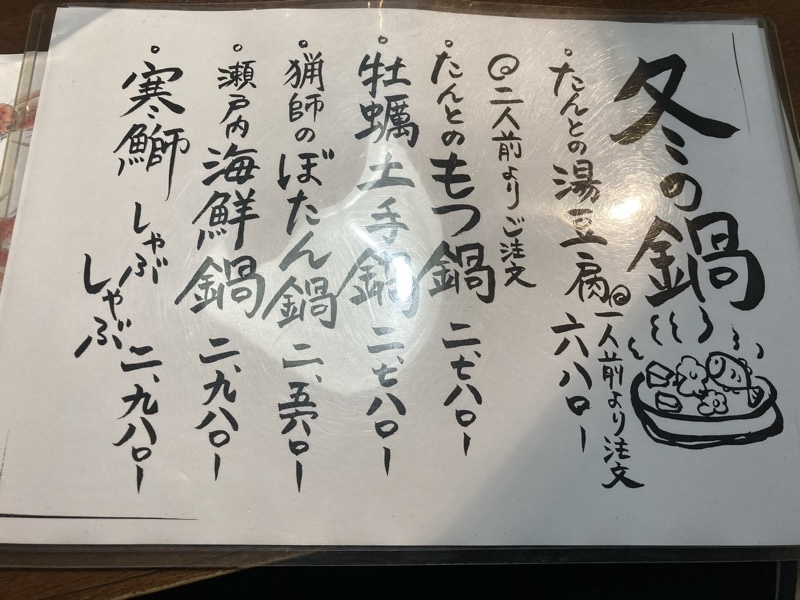 冬の鍋
・たんとの湯豆腐 六八〇ー
◎一人前より注文
◎二人前よりご注文
・たんとのもつ鍋 二、七八〇ー
・牡蠣土手鍋 二、七八〇ー
・猟師のぼたん鍋 二、五六〇ー
・瀬戸内海鮮鍋 二、九八〇ー
・寒鰤しゃぶしゃぶ 二、九八〇ー